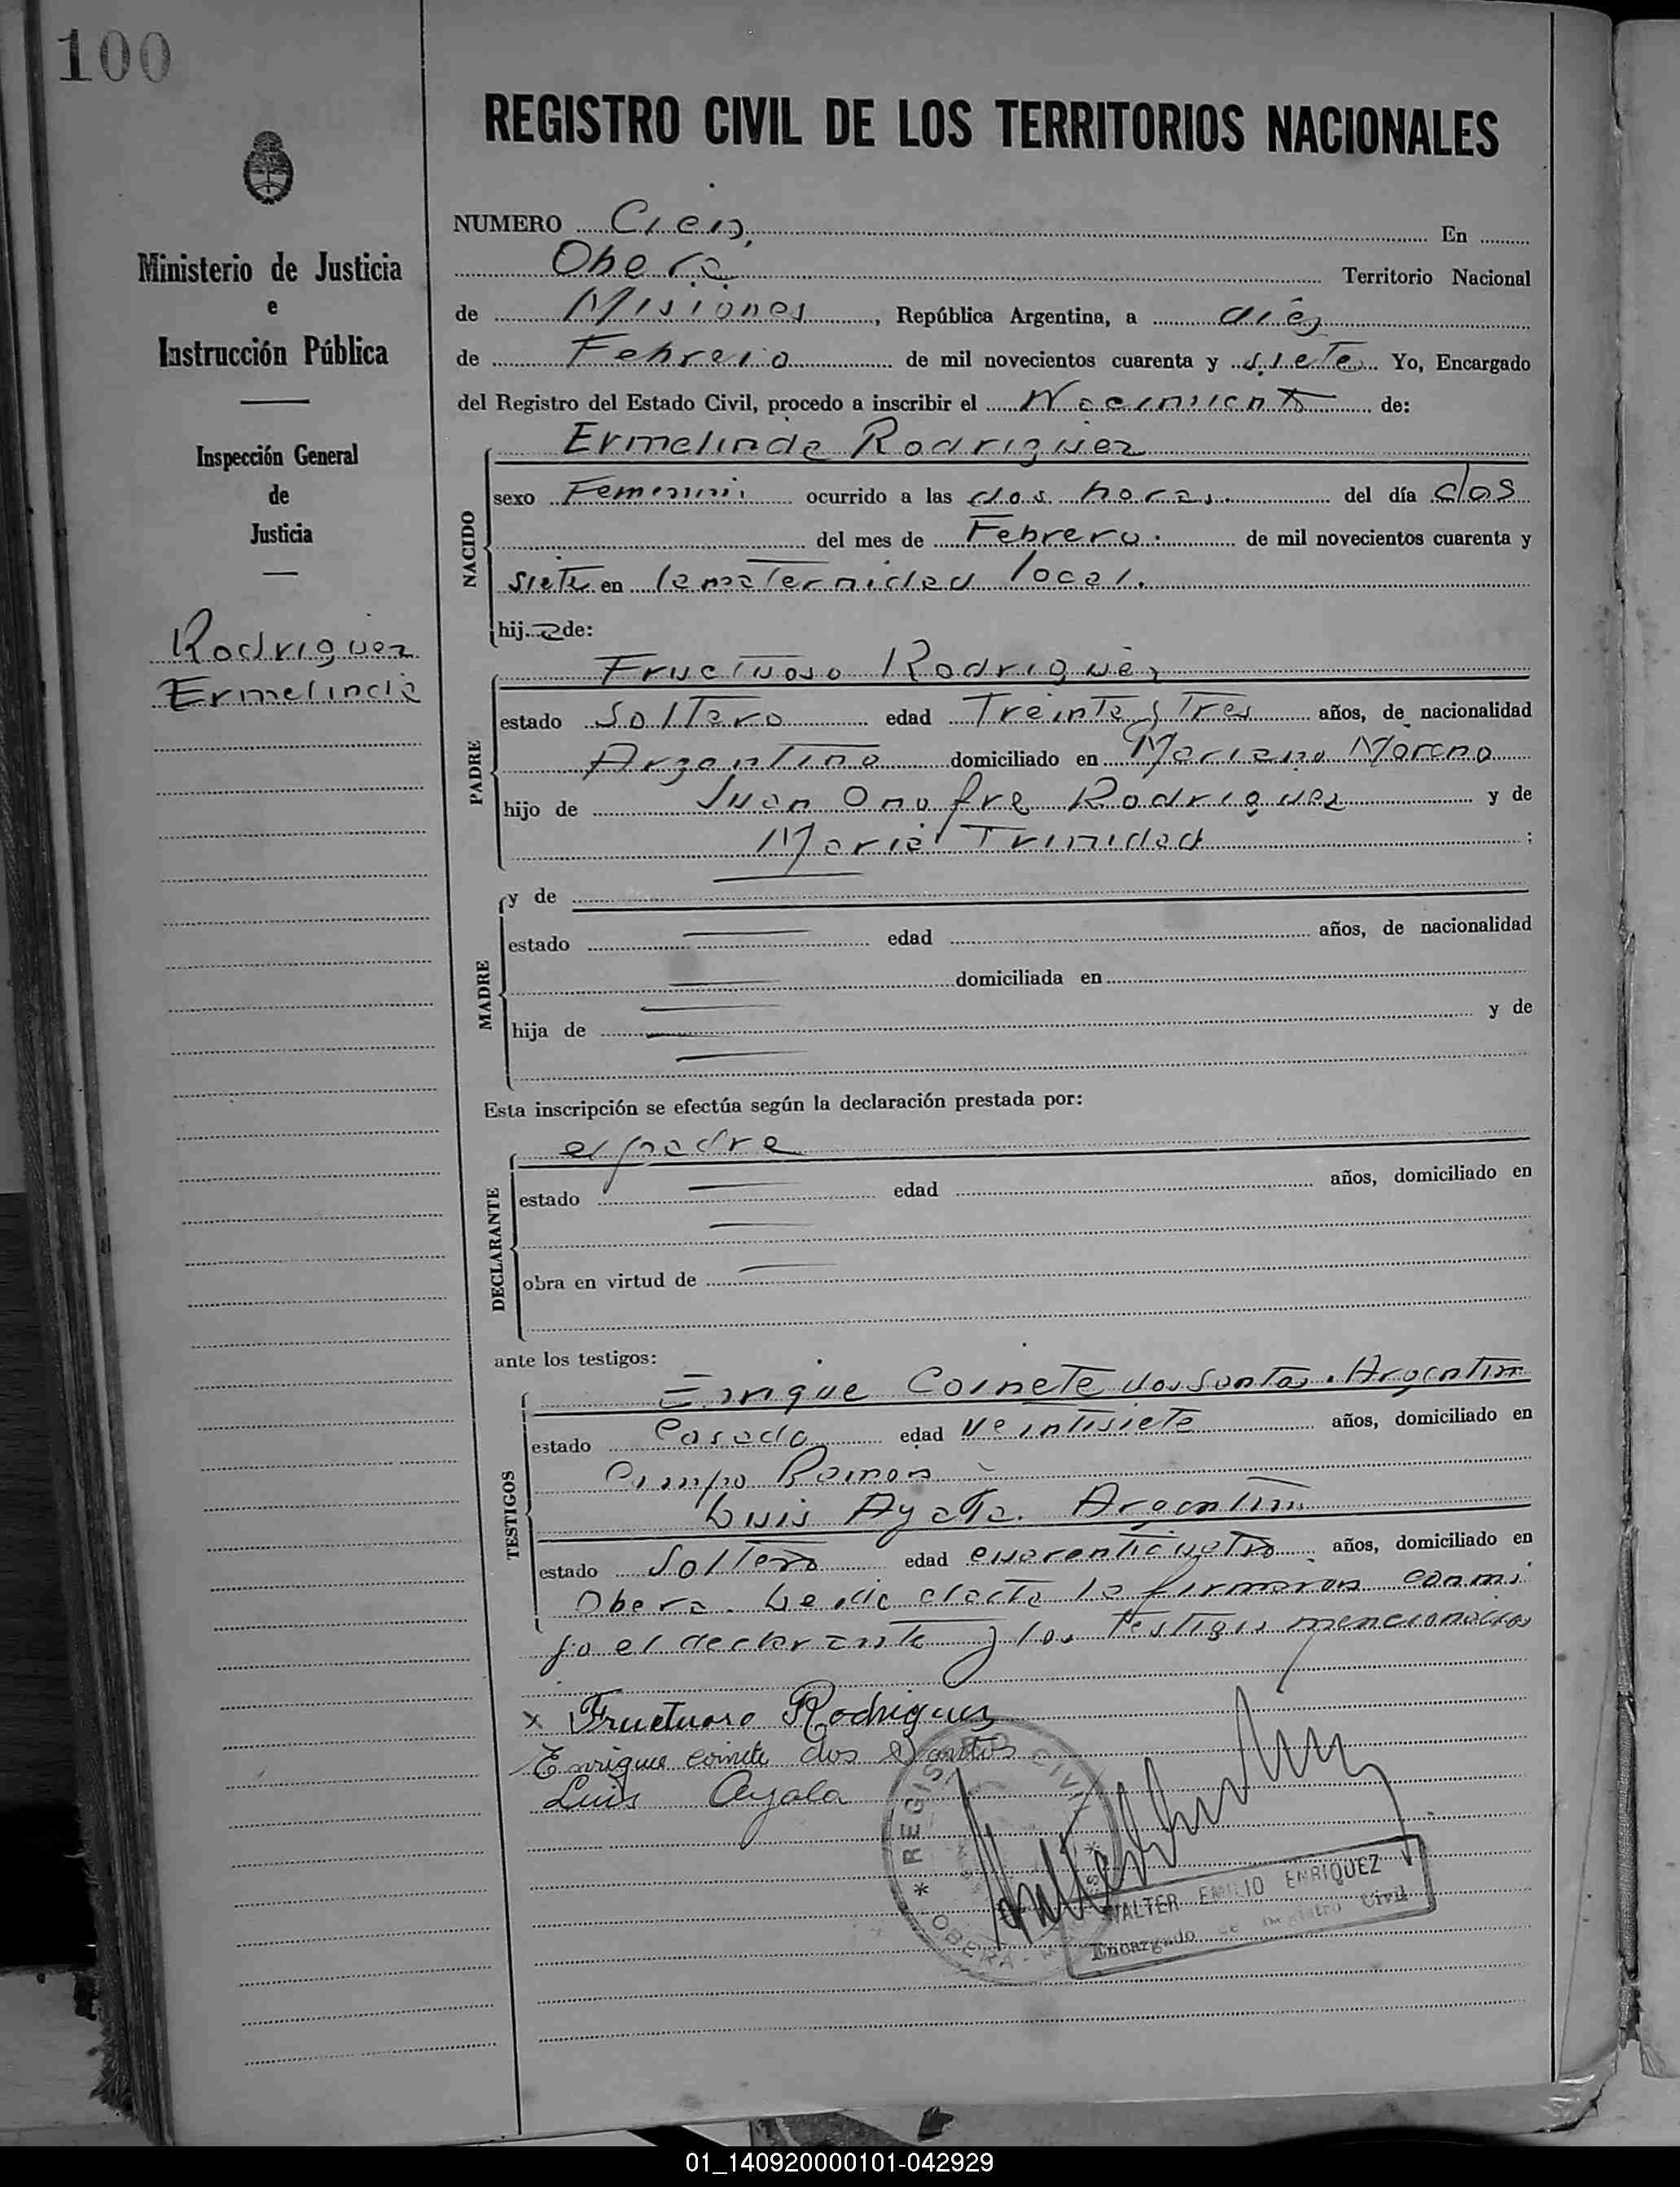 100
REGISTRO CIVIL DE LOS TERRITORIOS NACIONALES
Ministerio de Justicia
e
Instrucción Pública
Inspección General
de
Justicia
Rodriguez
Ermelinda
NUMERO Cien, En
Obera Territorio Nacional
de Misiones, República Argentina, a diéz
de Febrero de mil novecientos cuarenta y siete Yo, Encargado
del Registro del Estado Civil, procedo a inscribir el Nacimiento de:
NACIDO
Ermelinda Rodriguez
sexo Femenino ocurrido a las dos horas. del día dos
del mes de Febrero. de mil novecientos cuarenta y
siete en la maternidad local.
hija de:
PADRE
Fructuoso Rodriguez
estado Soltero edad Treinta y Tres años, de nacionalidad
Argentino domiciliado en Mariano Moreno
hijo de Juan Onofre Rodriguez y de
Maria Trinidad ;
MADRE
y de
estado edad años, de nacionalidad
domiciliada en
hija de y de
Esta inscripción se efectúa según la declaración prestada por:
DECLARANTE
el padre
estado edad años, domiciliado en
obra en virtud de
ante los testigos:
TESTIGOS
Enrique Coinete dos Santos. Argentino
estado Casado edad Veintisiete años, domiciliado en
Campo Ramon
Luis Ayala. Argentino
estado Soltero edad cuarenticuatro años, domiciliado en
Obera. Leida el acta la firmaron conmi
go el declarante y los testigos mencionados
x Fructuoso Rodriguez
Enrique coinete dos Santos
Luis Ayala
REGISTRO CIVIL
OBERA
WALTER EMILIO ENRIQUEZ
Encargado de Registro Civil
01_140920000101-042929